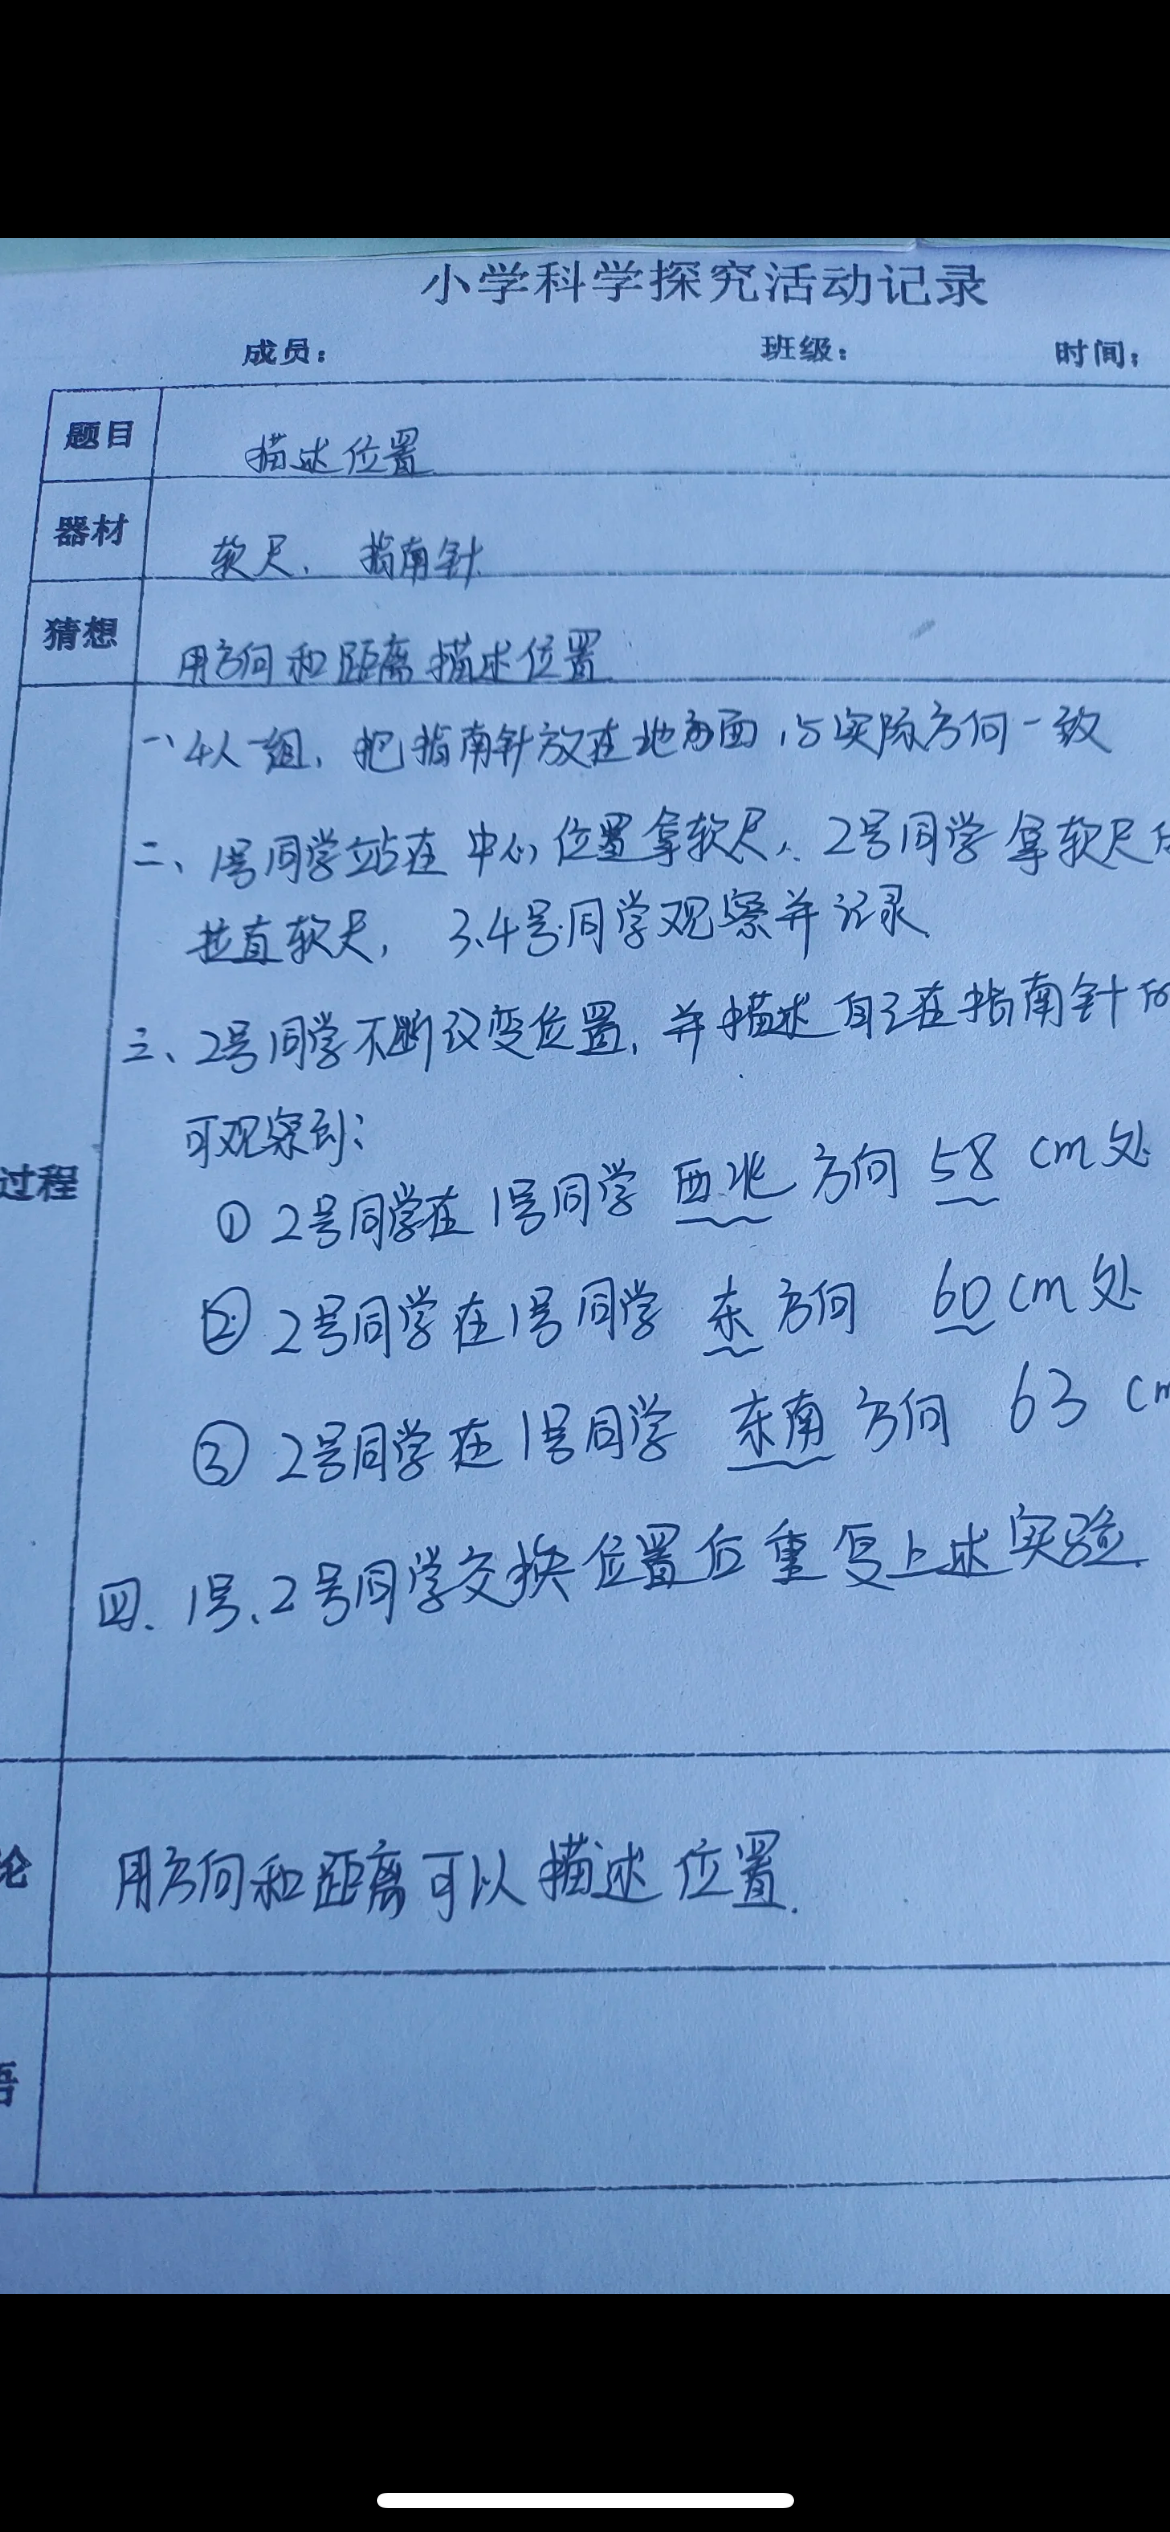 小学科学探究活动记录
成员： 班级： 时间：
题目 描述位置
器材 软尺、指南针
猜想 用方向和距离描述位置
一、4人一组，把指南针放在地面，与实际方向一致
二、1号同学站在中心位置拿软尺，2号同学拿软尺
拉直软尺，3、4号同学观察并记录
三、2号同学不断改变位置，并描述自己在指南针的
可观察到：
过程
① 2号同学在1号同学 西北 方向 58 cm处
② 2号同学在1号同学 东 方向 60 cm处
③ 2号同学在1号同学 东南 方向 63 cm
四、1号、2号同学交换位置后重复上述实验.
论 用方向和距离可以描述位置.
语